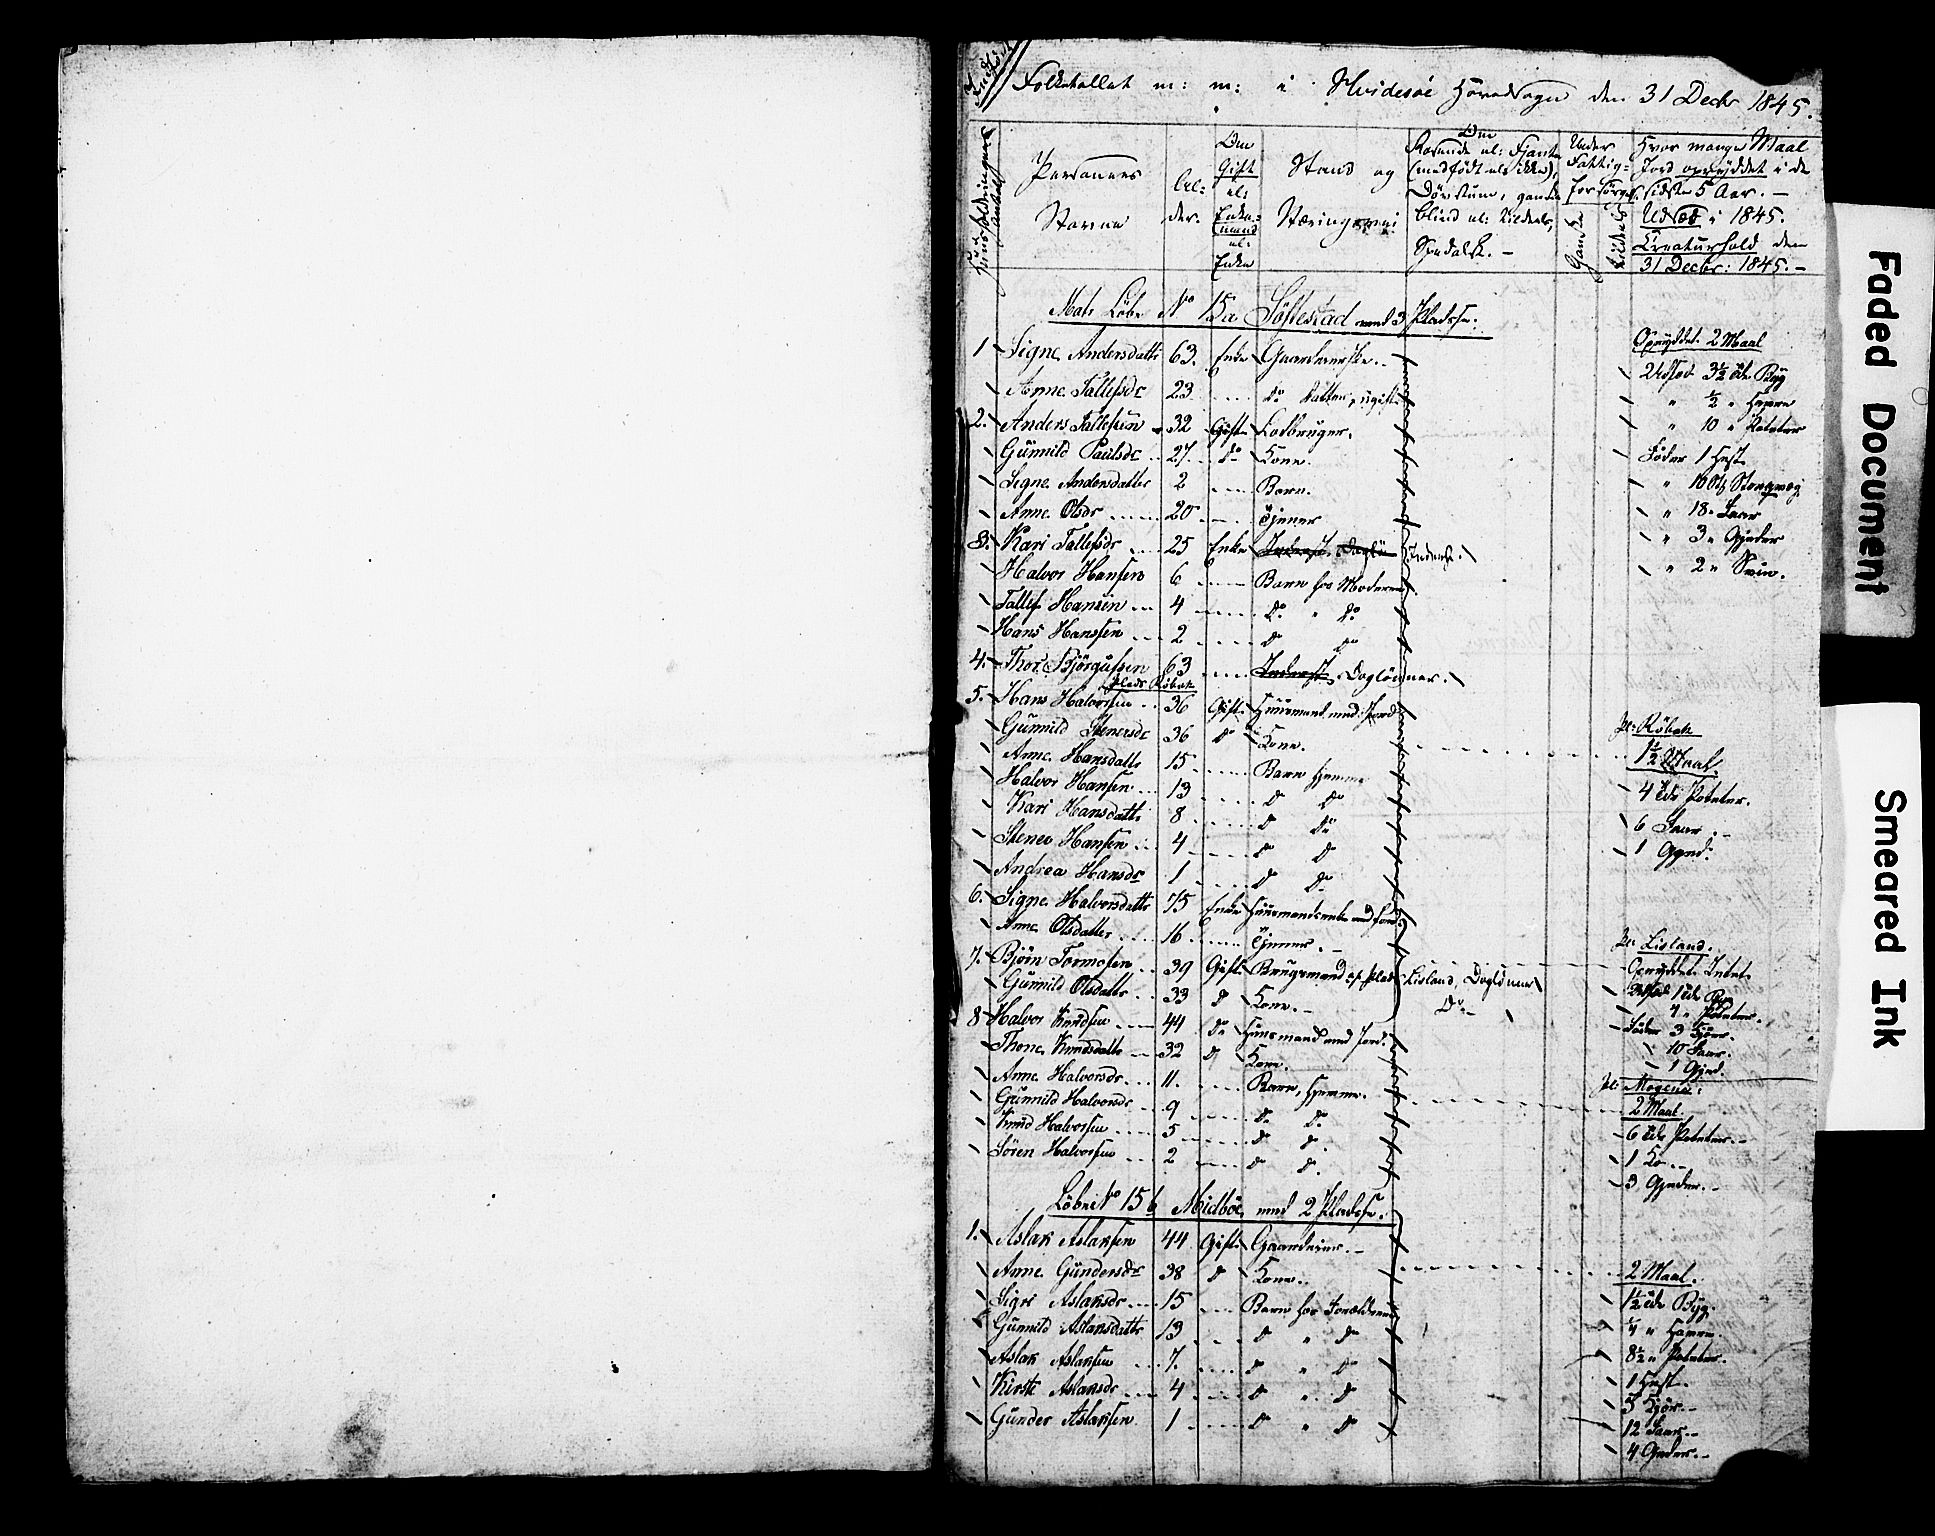 Folketallet m: m: i Hvidesöe Hovedsogn den 31 Decbr 1845.
Personernes Navne
Alder.
Om Gift el: Enkemand el: Enke
Stand og Næringsvei
Under Fattigforsörgelse
Ganske
Hvor mange Maal Jord opryddet i de sidste 5 Aar. —
Udsæd i 1845.
Creaturhold den 31 Decbr: 1845. —
Matr Löbe No 15a Söftestad med 3 Pladse.
1 Signe Andersdatter 63. Enke Gaardeierske. Opryddet 2 Maal
Anne Tallefsdr 23 do Datter, ugift Udsæd 3½ Tde Byg
" ½ " Havre
2. Anders Tallefsen 32 Gift Lodbruger. " 10 " Poteter
Gunnild Paulsdr 27 do Kone. Föder 1 Hest
Signe Andersdatter 2 Barn. " 10 Stk Storqvæg
Anne Olsdr 20 Tjener " 18 " Faar
3. Kari Tallefsdr 25 Enke Inderst Inderst. " 3 " Gjeder
Halvor Hansen 6 Barn hos Moderen " 2 " Sviin.
Tallef Hansen 4 do " do
Hans Hanssen 2 do do
4. Thor Björgulfsen 63 Inderst, Daglönner.
Plads Röbek
5. Hans Halvorsen 36 Gift Huusmand med Jord
Pl: Röbek
Gunnild Stenersdr 36 do Kone. 1½ Maal.
Anne Hansdatter 15 Barn hjemme
Halvor Hansen 13 do do 4 Tde Poteter.
Kari Hansdatter 8 do do 6 Faar
Stener Hansen 4 do do 1 Gjed.
Andrea Hansdr 1 do do
6. Signe Halvorsdatter 75 Enke Huusmandsenke med Jord.
Anne Olsdatter 16 Tjener.
Pl: Lisland.
7. Björn Tormosen 39 Gift Brugsmand af Plads Lisland, Daglönner Opryddet Intet
Gunnild Olsdatter 33 do Kone. do Udsæd 1 Tde Byg
" 4 " Poteter.
8 Halvor Knudsen 44 do Huusmand med Jord. Föder 3 Kjör.
Thone Knudsdatter 32 do Kone. 10 Faar.
1 Gjed
Anne Halvorsdr 11. Barn, hjemme. Pl: Mogene:
Gunnild Halvorsdr 9 do do 2 Maal.
Knud Halvorsen 5 do do 6 Tde Poteter.
Sören Halvorsen 2 do do 1 Ko.
3 Gjeder.
Löbe No 15 b Midböe, med 2 Pladse.
1. Aslak Aslaksen 44 Gift Gaardeier.
Anne Gundersdr 38 do Kone. 2 Maal.
Sigri Aslaksdr 15 Barn hos Forældrene 1½ Tde Byg.
Gunnild Aslaksdatter 13 do " do ¼ " Havre.
Aslak Aslaksen 7. do " do 8½ " Poteter.
Kirste Aslaksdr 4 do " do 1 Hest.
Gunder Aslaksen 1 do " do 5 Kjör.
12 Faar.
4 Gjeder.
Faded Document
Smeared Ink